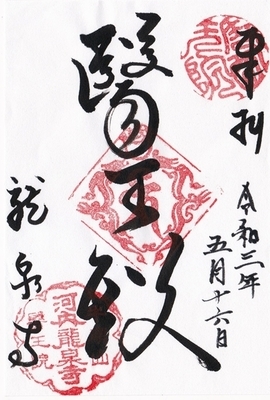 奉拝
令和三年
五月十六日
醫王殿
龍泉寺
河内龍泉寺